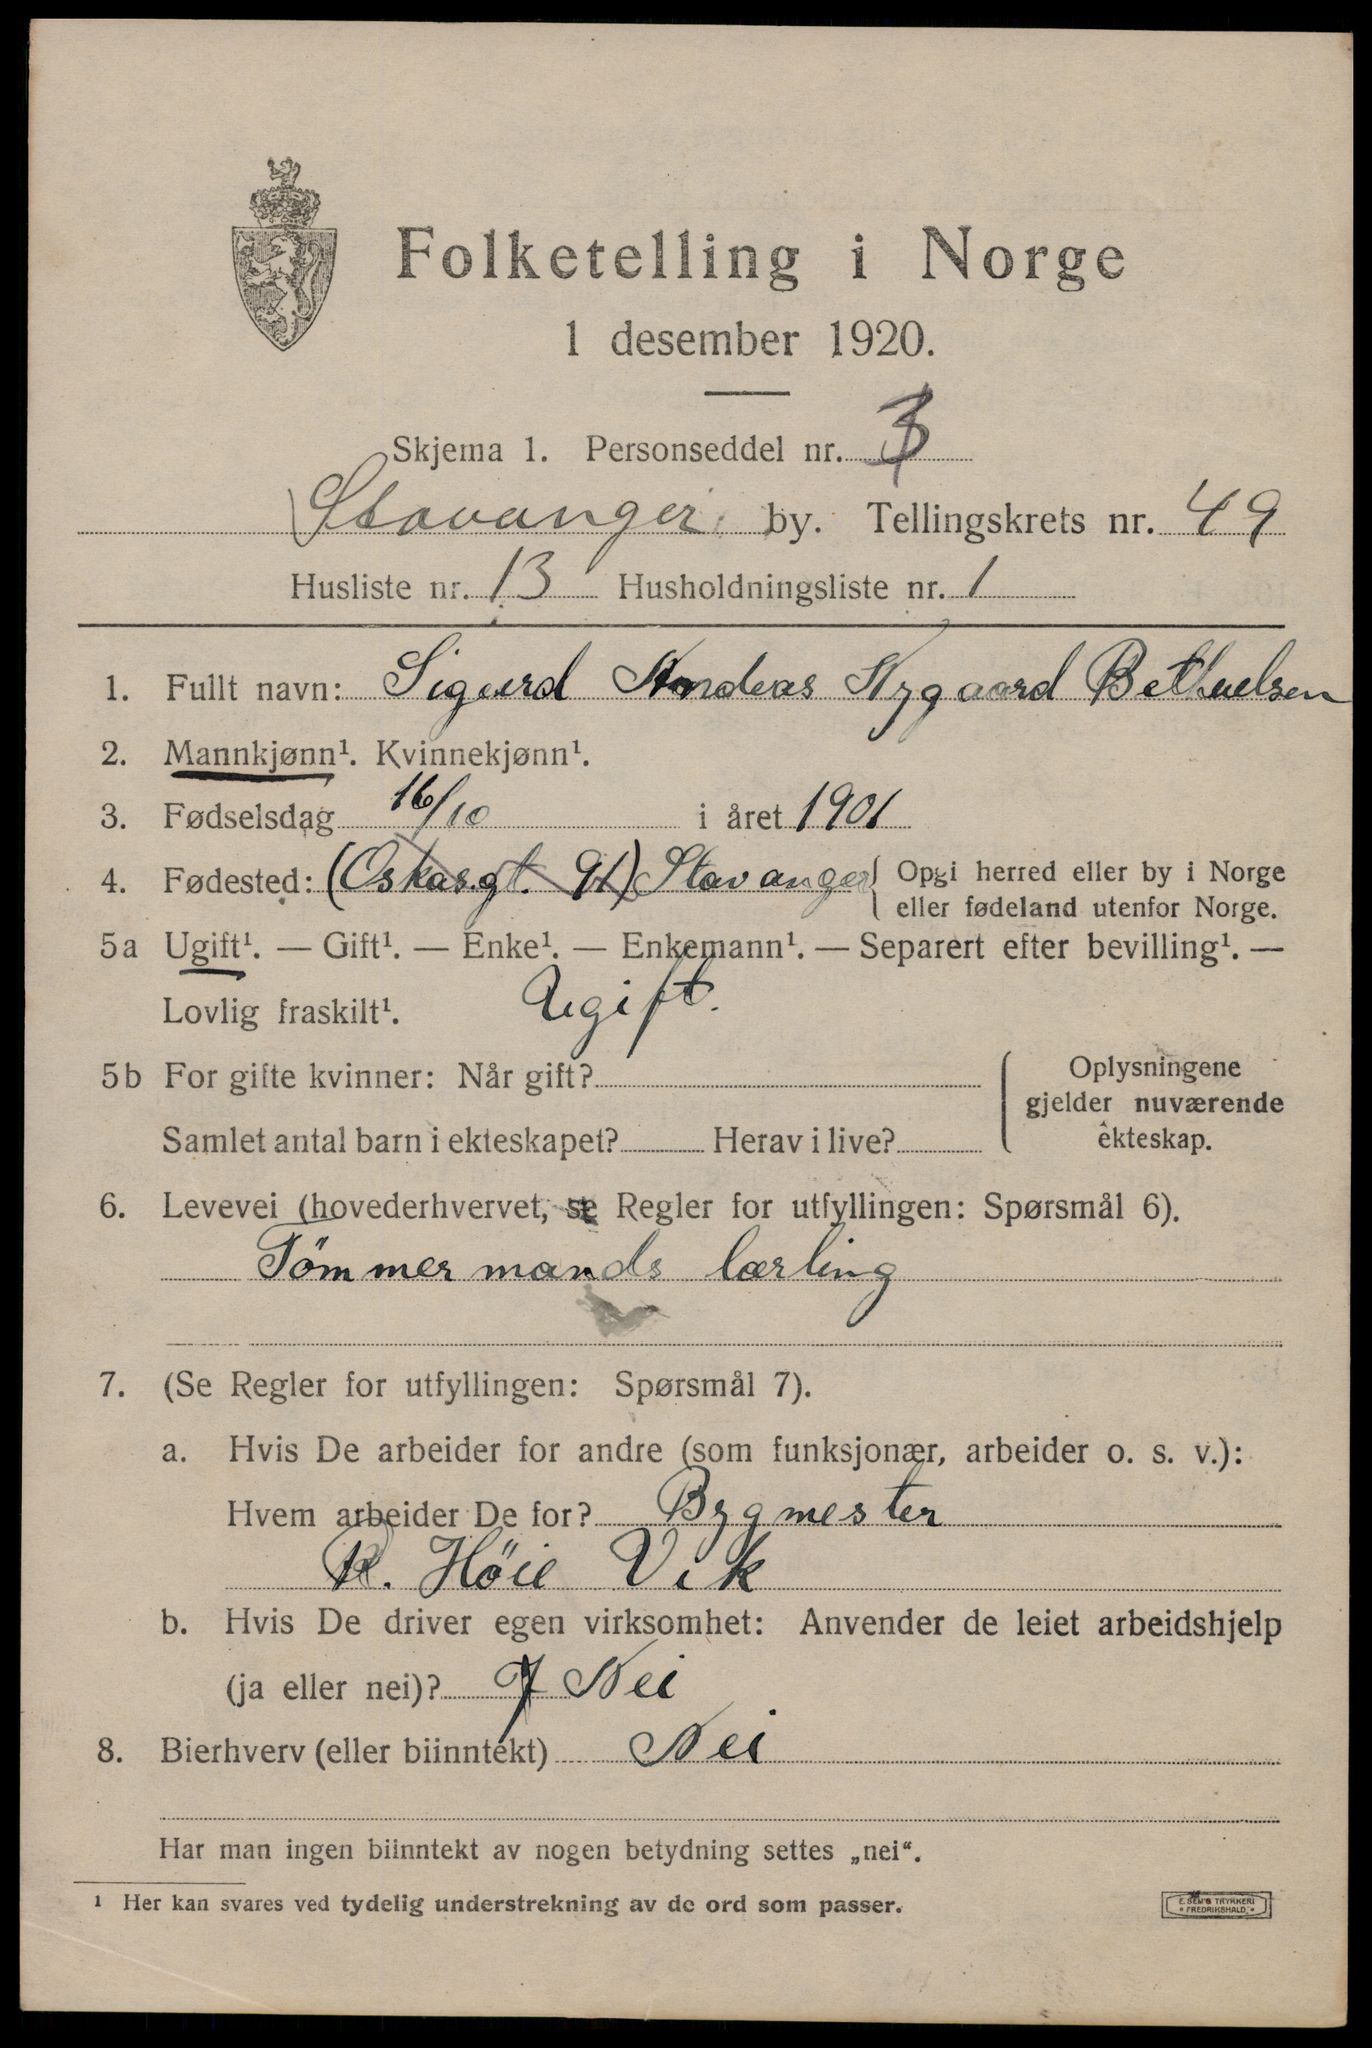 Folketelling i Norge
1 desember 1920.
Skjema 1. Personseddel nr. 3
Stavanger by. Tellingskrets nr. 49
Husliste nr. 13 Husholdningsliste nr. 1
1. Fullt navn: Sigurd Andeas Nygaard Bethuelsen
2. Mannkjønn¹. Kvinnekjønn¹.
3. Fødselsdag 16/10 i året 1901
4. Fødested: (Oskarsgt. 91) Stavanger { Opgi herred eller by i Norge
eller fødeland utenfor Norge.
5a Ugift¹. — Gift¹. — Enke¹. — Enkemann¹. — Separert efter bevilling¹. —
Lovlig fraskilt¹. Ugift.
5b For gifte kvinner: Når gift?
Samlet antal barn i ekteskapet? Herav i live?
Oplysningene
gjelder nuværende
ekteskap.
6. Levevei (hovederhvervet, se Regler for utfyllingen: Spørsmål 6).
Tömmermands lærling
7. (Se Regler for utfyllingen: Spørsmål 7).
a. Hvis De arbeider for andre (som funksjonær, arbeider o. s. v.):
Hvem arbeider De for? Bygmester
R. Höie Vik
b. Hvis De driver egen virksomhet: Anvender de leiet arbeidshjelp
(ja eller nei)? Nei
8. Bierhverv (eller biinntekt) Nei
Har man ingen biinntekt av nogen betydning settes „nei“.
¹ Her kan svares ved tydelig understrekning av de ord som passer.
E. SEM'S TRYKKERI
FREDRIKSHALD